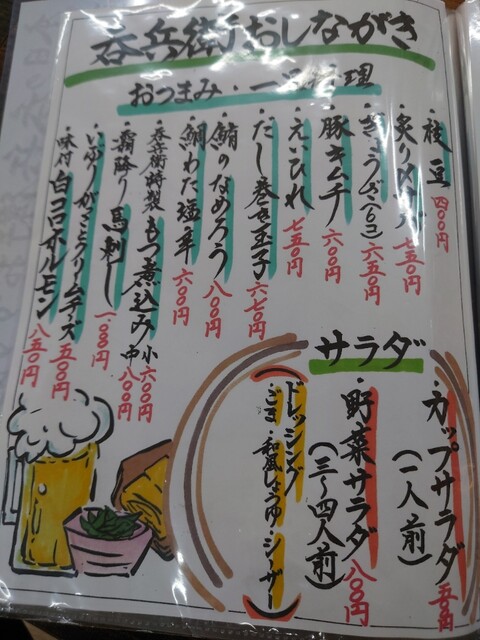 呑兵衛おしながき
おつまみ・一品料理
・枝豆 四〇〇円
・炙り〆サバ 七五〇円
・ぎょうざ(6コ) 六五〇円
・豚キムチ 六〇〇円
・えいひれ 七五〇円
・だし巻き玉子 六七〇円
・鯵のなめろう 八〇〇円
・鯛わた塩辛 六〇〇円
・呑兵衛特製もつ煮込み 小六〇〇円 中八〇〇円
・霜降り馬刺し
・いぶりがっことクリームチーズ 五〇〇円
・味付白コロホルモン 八五〇円
サラダ
・カップサラダ(一人前) 五〇〇円
・野菜サラダ(三〜四人前) 八〇〇円
ドレッシング
・ごま・和風しょうゆ・シーザー